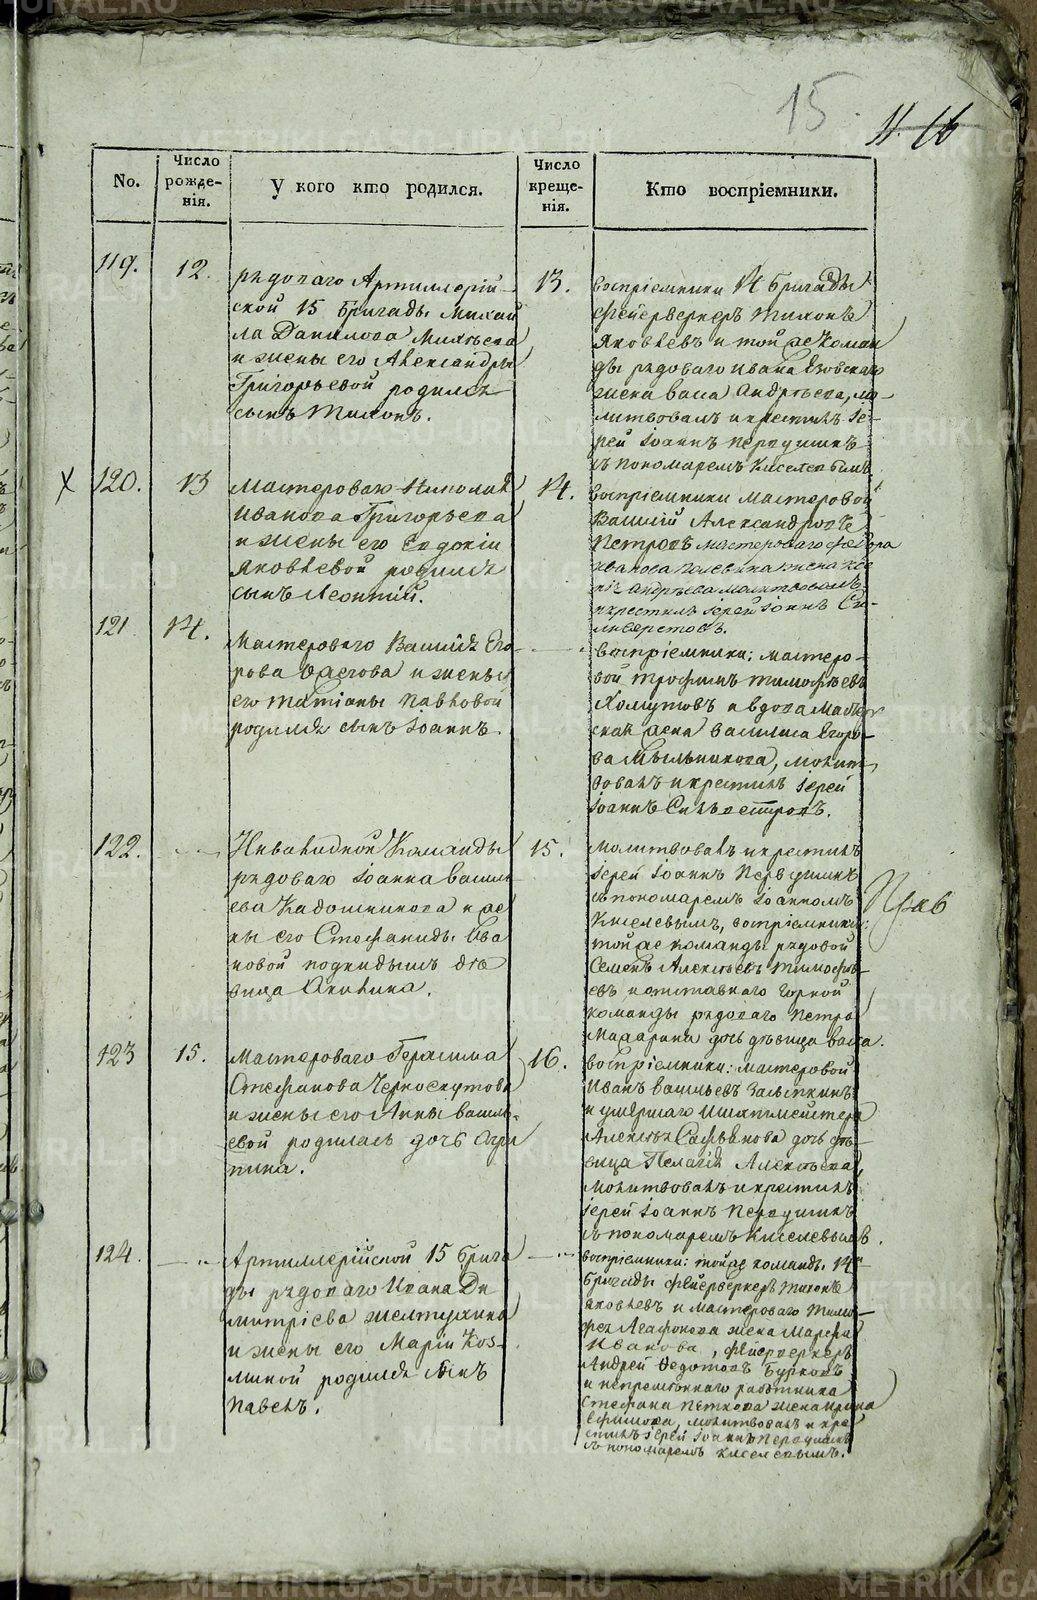 15
11. 16
No.
Число рожде-нія.
У кого кто родился.
Число креще-нія.
Кто воспріемники.
119.
12.
рядоваго Артиллерій-
ской 15 Бригады Михай
ла Данилова Михѣева
и жены его Александры
Григорьевой родился
сынъ Тихонъ.
13.
воспріемники 14 Бригады
фейерверкеръ Тихонъ
Яковлевъ и той же Коман
ды рядоваго Ивана
жена Васса Андрѣева, мо-
литвовалъ и крестилъ Іе-
рей Іоаннъ Первушинъ
съ пономаремъ Киселевымъ
120.
13
Мастероваго Николая
Иванова Григорьева
и жены его Евдокіи
Яковлевой родился
сынъ Леонтій.
14.
воспріемники мастеровой
Василій Александровъ
Петровъ мастероваго Федора
Иванова жена
Андрѣева молитвовалъ
и крестилъ Іерей Іоаннъ Си-
льверстовъ.
121
14.
Мастероваго Василія Его-
рова и жены
его Татіаны Павловой
родился сынъ Іоаннъ.
воспріемники: мастеро-
вой Трофимъ Тимофѣевъ
Хомутовъ и вдова мастер
ская жена Василиса Егоро-
ва Мыльникова, молит
вовалъ и крестилъ Іерей
Іоаннъ Сильвестровъ.
122.
Инвалидной Команды
рядоваго Іоанна Василь
ева Кадошникова и же
ны его Стефаниды Ива
новой подкидышъ дѣ
вица Акилина.
15.
Молитвовалъ и крестилъ
Іерей Іоаннъ Первушинъ
съ пономаремъ Іоанномъ
Киселевымъ, воспріемники:
той же команды рядовой
Семенъ Алексѣевъ Тимофѣ-
евъ и отставнаго Горной
команды рядоваго Петра
Макарина дочь дѣвица Васса.
123
15.
Мастероваго Герасима
Стефанова Черноскутова
и жены его Анны Василь-
евой родилась дочь Агри
пина.
16.
воспріемники: мастеровой
Иванъ Васильевъ
и умершаго Шихтмейстера
Алексѣя Сафьянова дочь дѣ-
вица Пелагія Алексѣева,
молитвовалъ и крестилъ
Іерей Іоаннъ Первушинъ
съ пономаремъ Киселевымъ.
124.
Артиллерійской 15 Брига
ды рядоваго Ивана Ди
митріева Желтухина
и жены его Маріи Коз-
миной родился сынъ
Павелъ.
воспріемники: той же команды 14й
Бригады фейерверкеръ Тихонъ
Яковлевъ и мастероваго Тимо-
фея Агафонова жена Марфа
Иванова, фейерверкеръ
Андрей Федотовъ Бурковъ
и непремѣннаго работника
Стефана Пѣткова жена Ирина
Ефимова, молитвовалъ и кре
стилъ Іерей Іоаннъ Первушинъ
съ пономаремъ Киселевымъ.
METRIKI.GASO-URAL.RU